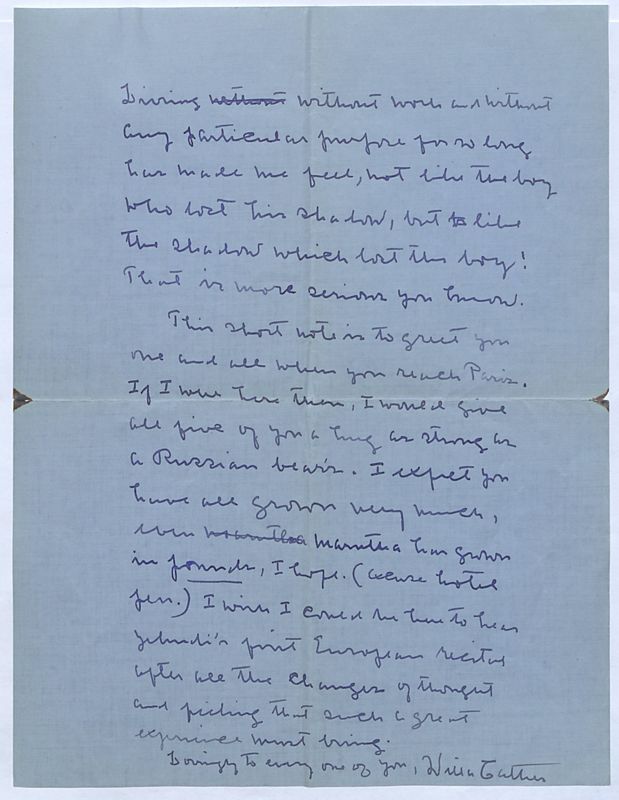 Living without without work and without
any particular purpose for so long
has made me feel, not like the boy
who lost his shadow, but like
the shadow which lost the boy!
That is more serious you know.
This short note is to greet you
one and all when you reach Paris.
If I were here then, I would give
all five of you a hug as strong as
a Russian bear's. I expect you
have all grown very much,
even Marutha has grown
in pounds, I hope. (excuse hotel
pen.) I wish I could be here to hear
Yehudi's first European recital
after all the changes of thought
and feeling that such a great
experience must bring.
Lovingly to every one of you, Willa Cather